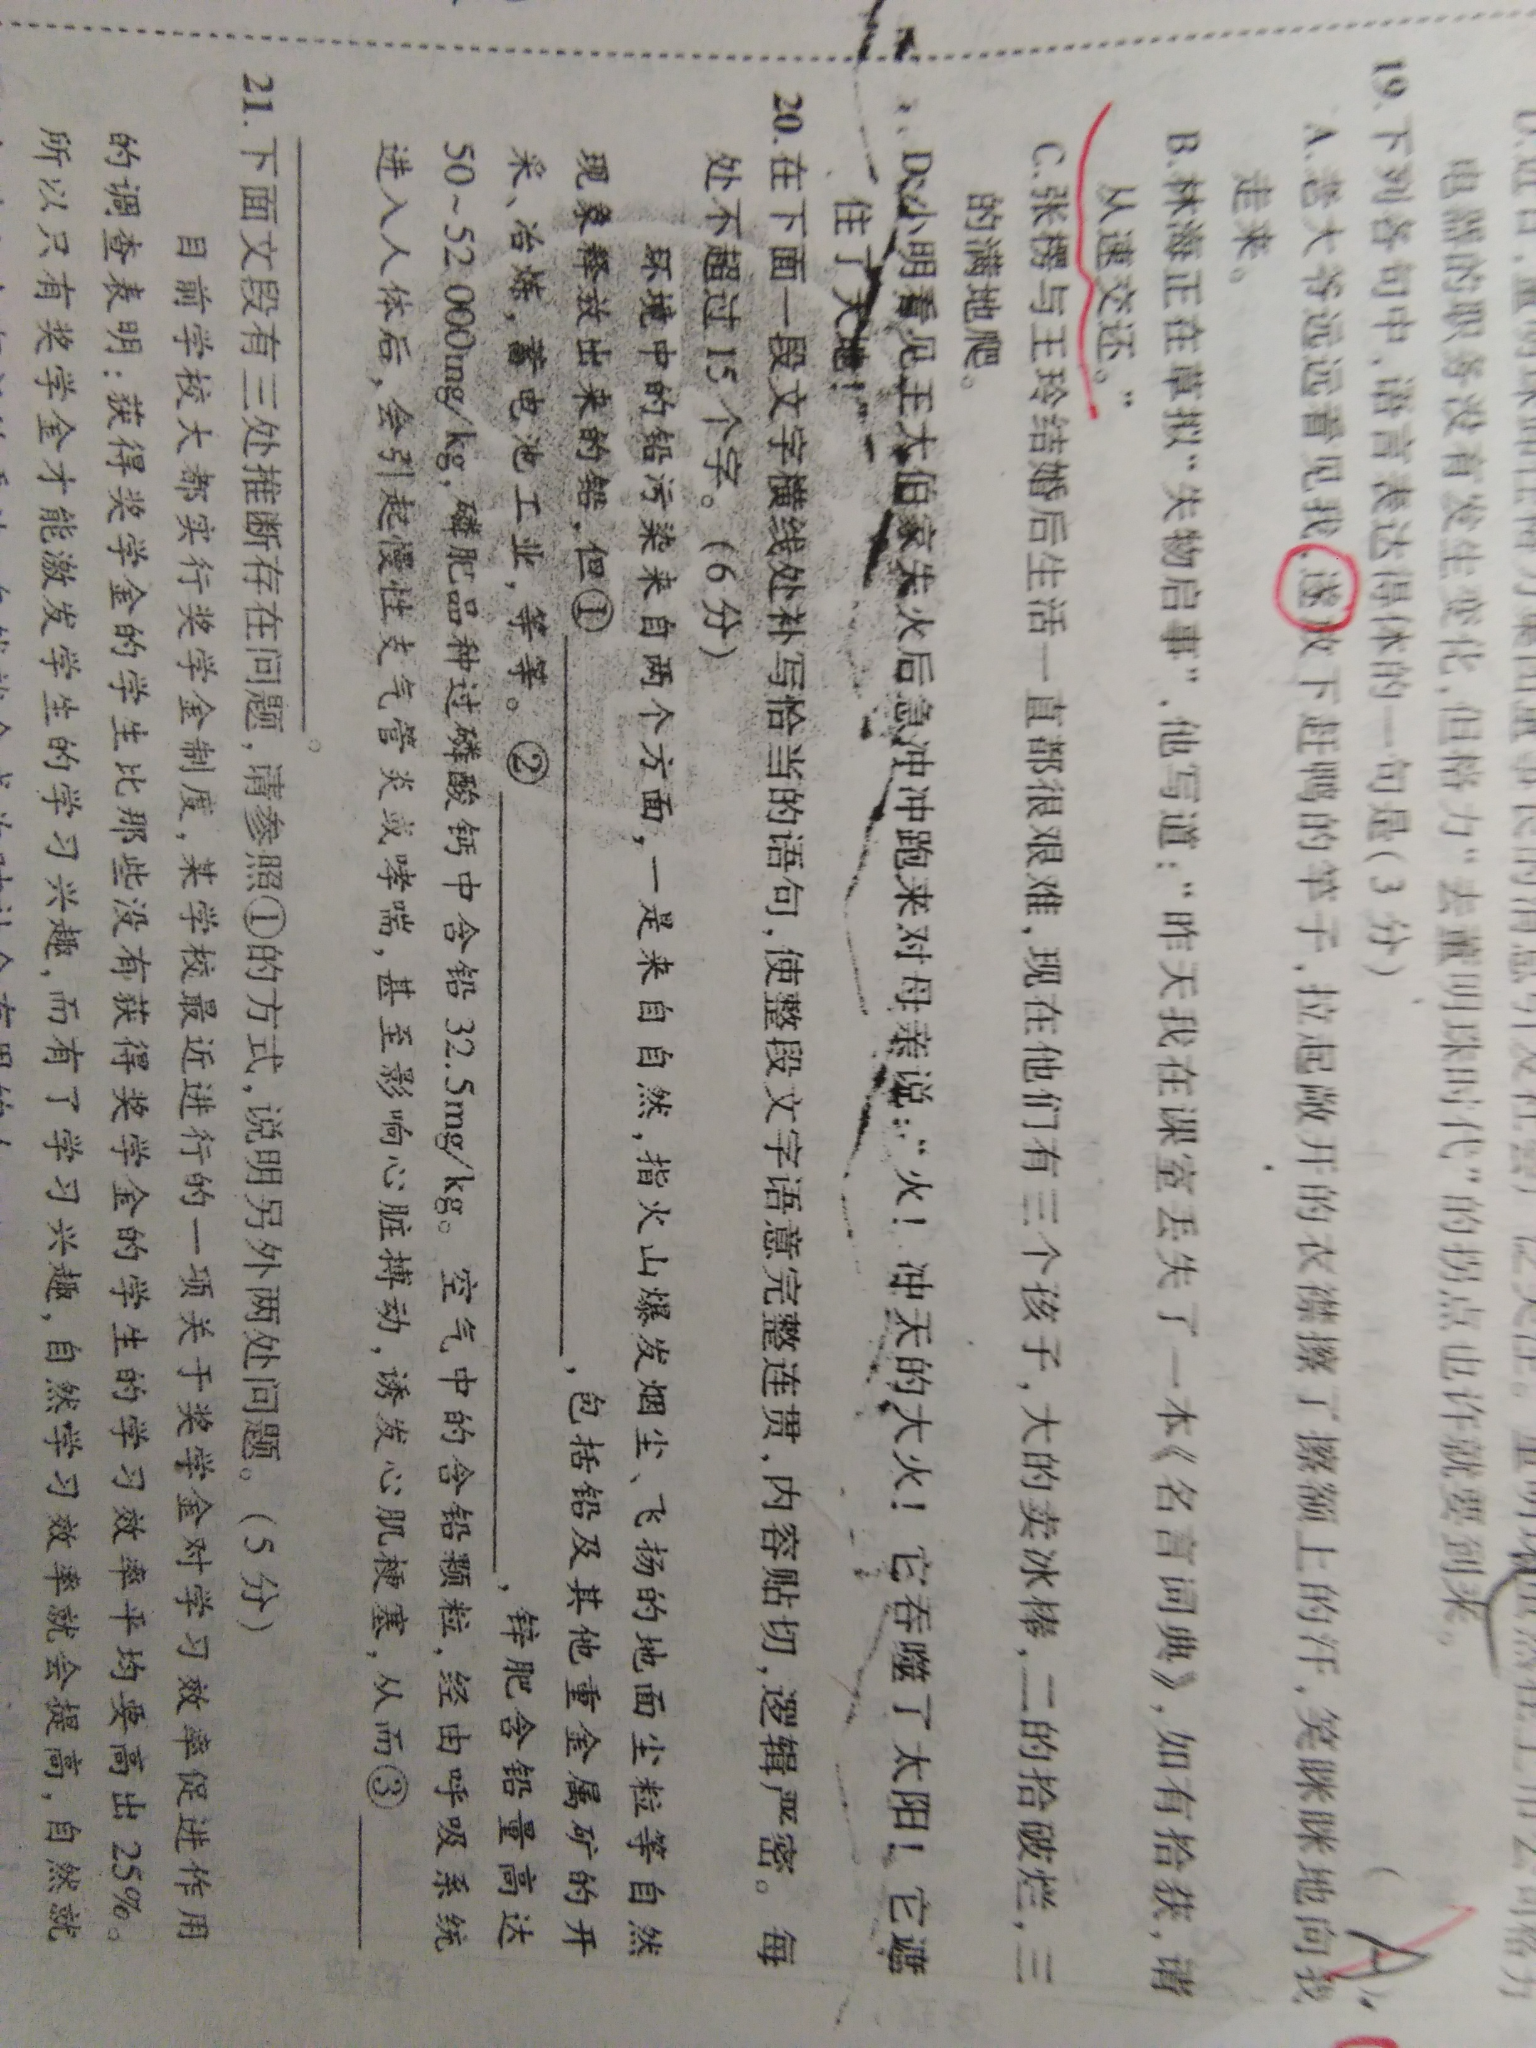 电器的职务没有发生变化,但格力“去董明珠时代”的拐点也许就要到来。
19.下列各句中,语言表达得体的一句是(3分)
( A )
A.老大爷远远看见我,遂放下赶鸭的竿子,拉起敞开的衣襟擦了擦额上的汗,笑眯眯地向我
走来。
B.林海正在草拟“失物启事”,他写道:“昨天我在课室丢失了一本《名言词典》,如有拾获,请
从速交还。”
C.张楞与王玲结婚后生活一直都很艰难,现在他们有三个孩子,大的卖冰棒,二的拾破烂,三
的满地爬。
D.小明看见王大伯家失火后急冲冲跑来对母亲说:“火!冲天的大火!它吞噬了太阳!它遮
住了天地!
20.在下面一段文字横线处补写恰当的语句,使整段文字语意完整连贯,内容贴切,逻辑严密。每
处不超过15个字。(6分)
环境中的铅污染来自两个方面,一是来自自然,指火山爆发烟尘、飞扬的地面尘粒等自然
现象释放出来的铅,但①,包括铅及其他重金属矿的开
采、冶炼,蓄电池工业,等等。②,锌肥含铅量高达
50~52 000mg/kg,磷肥品种过磷酸钙中含铅32.5mg/kg。空气中的含铅颗粒,经由呼吸系统
进入人体后,会引起慢性支气管炎或哮喘,甚至影响心脏搏动,诱发心肌梗塞,从而③
。
21.下面文段有三处推断存在问题,请参照①的方式,说明另外两处问题。(5分)
目前学校大都实行奖学金制度,某学校最近进行的一项关于奖学金对学习效率促进作用
的调查表明:获得奖学金的学生比那些没有获得奖学金的学生的学习效率平均要高出25%。
所以只有奖学金才能激发学生的学习兴趣,而有了学习兴趣,自然学习效率就会提高,自然就